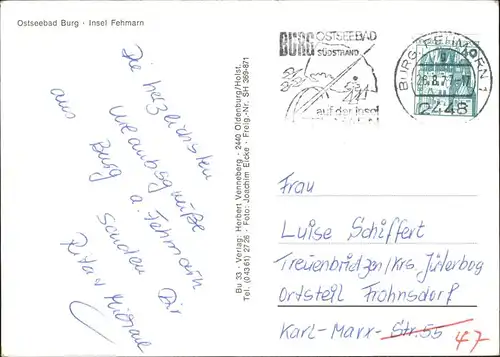 Ostseebad Burg · Insel Fehmarn
Die herzlichsten
Urlaubsgrüße
aus Burg a. Fehmarn
senden Dir
Rita + Michael
Bu 33 · Verlag: Herbert Venneberg · 2440 Oldenburg/Holst.
Tel. (0 43 61) 27 26 · Foto: Joachim Eicke · Freig.-Nr. SH 369-871
BURG OSTSEEBAD
SÜDSTRAND
auf der Insel
BURG, FEHMARN 1
2448
Frau
Luise Schiffert
Treuenbrietzen/Krs. Jüterbog
Ortsteil Frohnsdorf
Karl-Marx-Str. 55 47